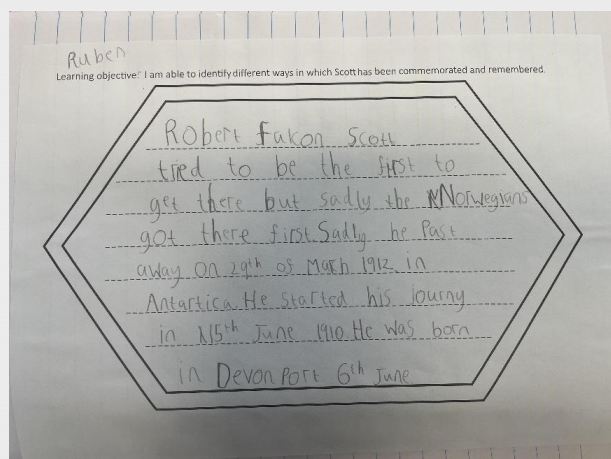 Ruben
Learning objective: I am able to identify different ways in which Scott has been commemorated and remembered.
Robert Fakon Scott
tried to be the first to
get there but sadly the Norwegians
got there first. Sadly he Past
away on 29th of March 1912 in
Antartica. He started his journy
in 15th June 1910. He was born
in Devon Port 6th June